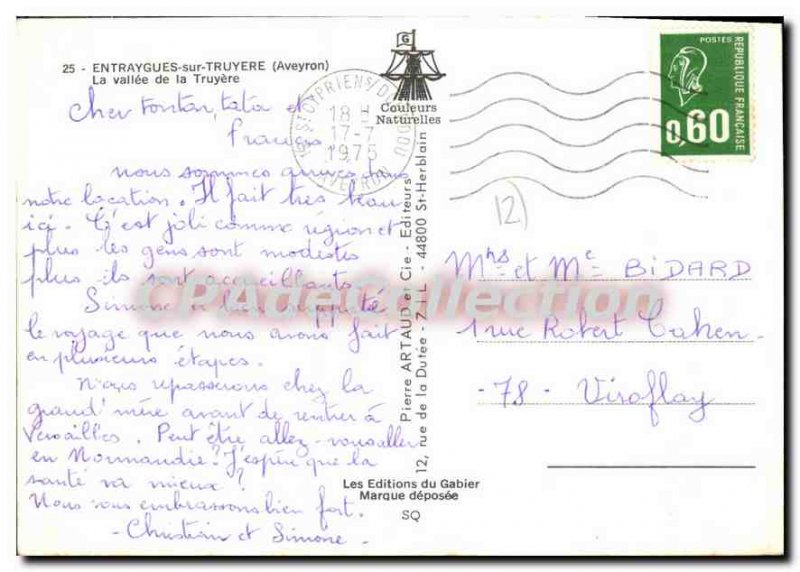 25 - ENTRAYGUES-sur-TRUYERE (Aveyron)
La vallée de la Truyère
Cher tonton, tata et
Francis
nous sommes arrivés dans
notre location. Il fait très beau
ici. C'est joli comme région et
plus les gens sont modestes
plus ils sont accueillants
Simone a bien supporté
le voyage que nous avons fait
en plusieurs étapes.
Nous repasserons chez la
grand'mère avant de rentrer à
Versailles. Peut être allez-vous aller
en Normandie? J'espère que la
santé va mieux?
Nous vous embrassons bien fort.
- Christian et Simone -
G
Couleurs
Naturelles
ST CYPRIEN S/ DOURDOU
18 H
17-7
1975
AVEYRON
Pierre ARTAUD et Cie - Editeurs
12, rue de la Dutée - Z.I.L - 44800 St-Herblain
Les Editions du Gabier
Marque déposée
SQ
POSTES
REPUBLIQUE FRANÇAISE
0,60
12)
Mrs et Me BIDARD
1 rue Robert Cahen
- 78 - Viroflay
CPAdeCollection